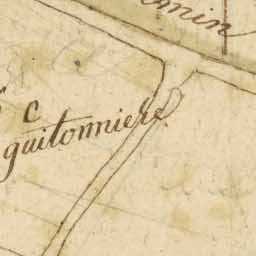 min
c
guitonniere